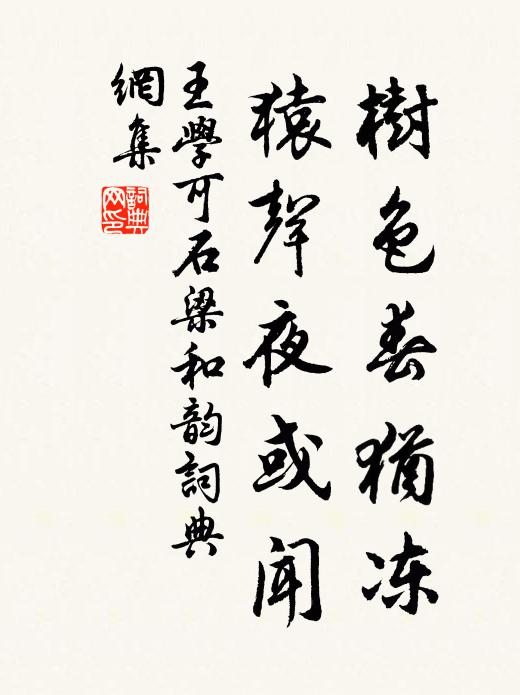 樹色春猶冻
猿聲夜或闻
王學可石梁和韵詞典
網集
詞典网印